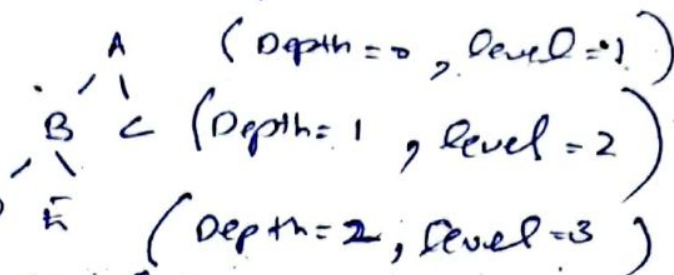 A (Depth = 0, level = 1)
B C (Depth = 1, level = 2)
E (Depth = 2, level = 3)